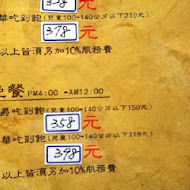 328元
華吃到飽(兒童100-140公分以下219元)
378元
以上皆須另加10%服務費
餐 PM4:00 -AM12:00
吃到飽(兒童100-140公分以下159元)
358元
華吃到飽(兒童100-140公分以下219元)
398元
以上皆須另加10%服務費